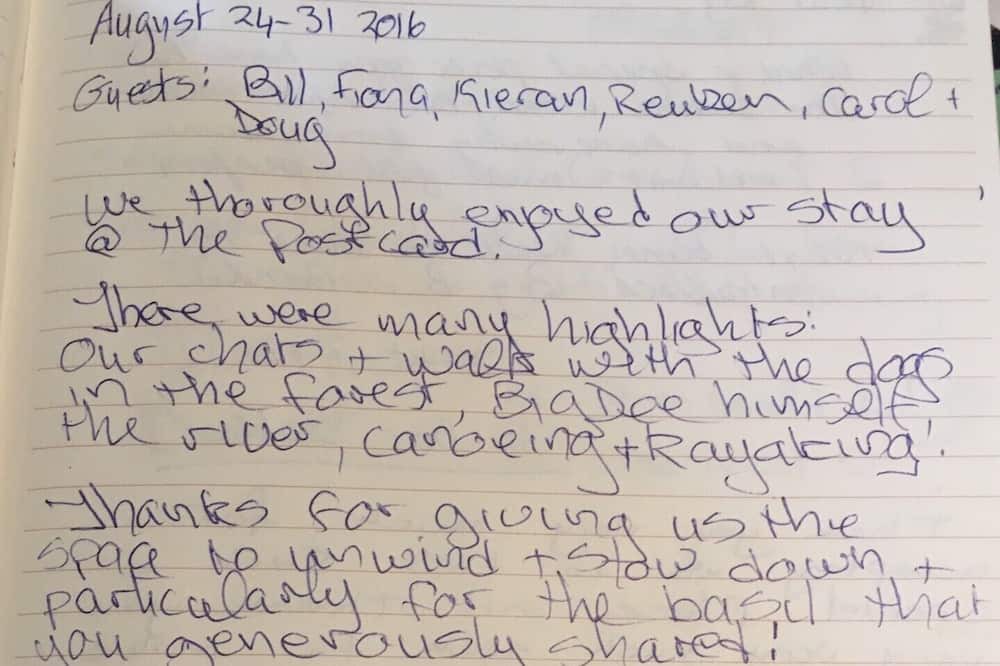 August 24-31 2016
Guests: Bill, Fiona, Kieran, Reuben, Carol +
Doug
We thoroughly enjoyed our stay
@ The Postcard.
There were many highlights:
Our chats + walks with the dogs
in the forest, BigDee himself,
the river, canoeing + kayaking!
Thanks for giving us the
space to unwind + slow down +
particularly for the basil that
you generously shared!